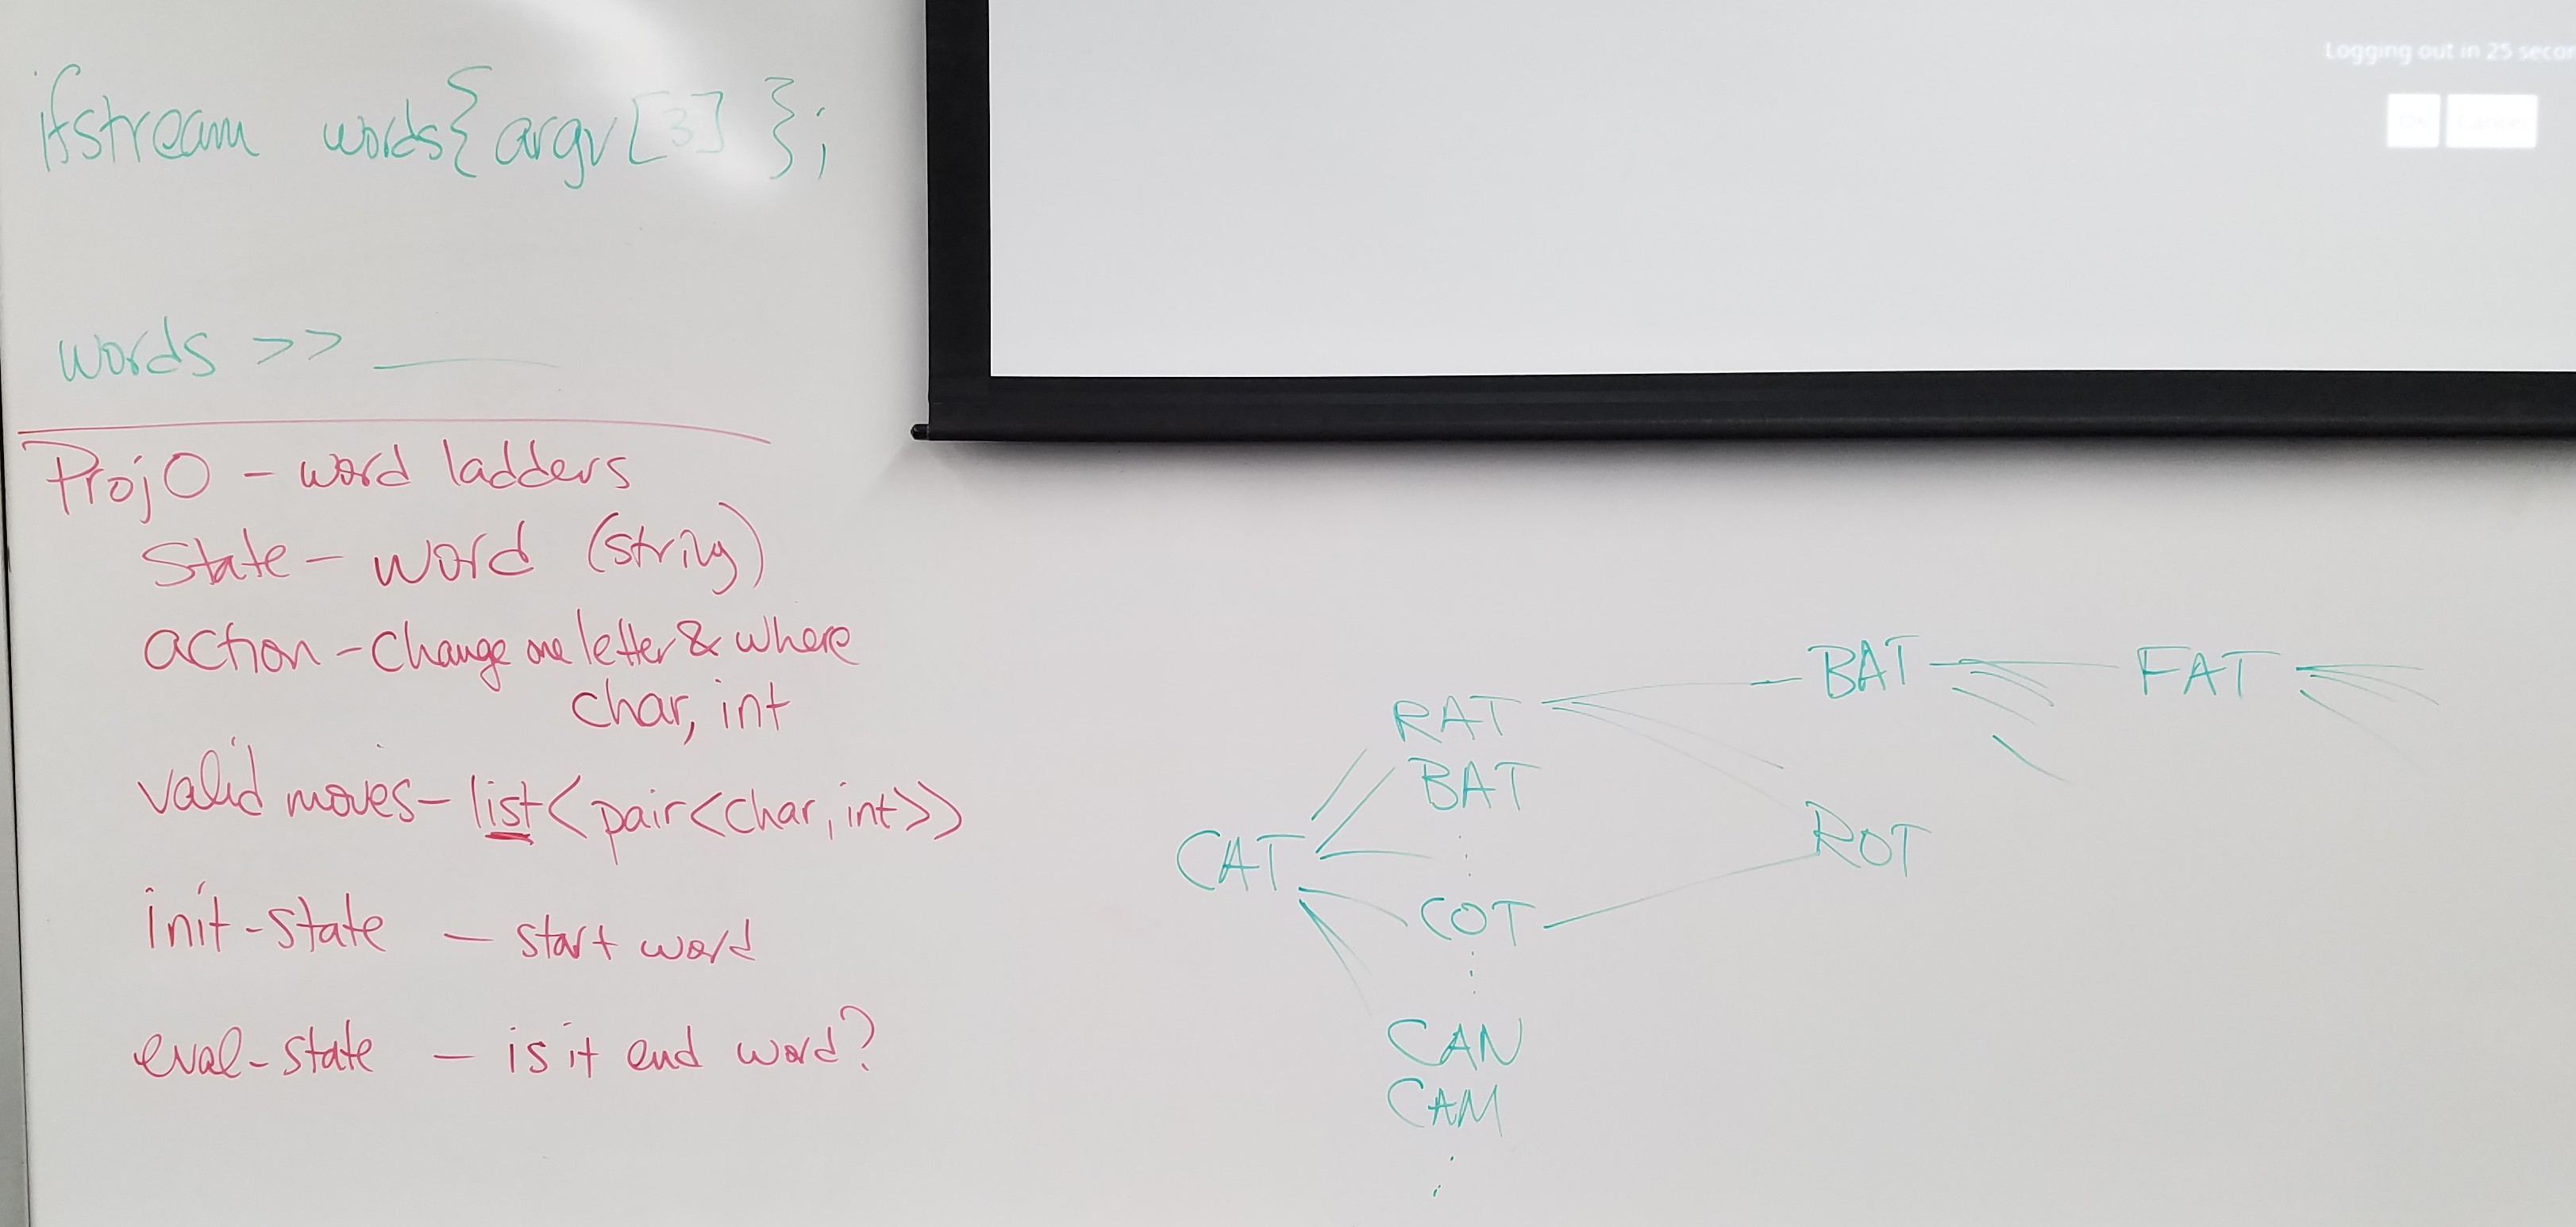 ifstream words{argv[3]};
words >> ____
Proj0 - word ladders
state - word (string)
action - change one letter & where
char, int
valid moves - list<pair<char, int>>
init-state - start word
eval-state - is it end word?
Logging out in 25
RAT BAT FAT
BAT
CAT ROT
COT
CAN
CAM